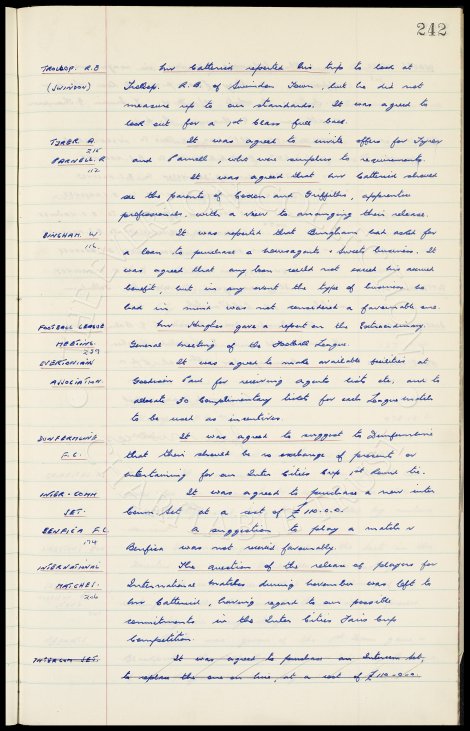 242
TROLLOP. R.B. Mr Catterick reported his trip to look at
(SWINDON) Trollop. R.B. of Swindon Town, but he did not
measure up to our standards. It was agreed to
look out for a 1st Class full back.
TYRER A. It was agreed to invite offers for Tyrer
215
PARNELL. R and Parnell, who were surplus to requirements.
112
It was agreed that Mr Catterick should
see the parents of and Griffiths, apprentice
professionals, with a view to arranging their release.
BINGHAM. W. It was reported that Bingham had asked for
116. a loan to purchase a newsagents & sweets business. It
was agreed that any loan could not exceed his accrued
benefit, but in any event the type of business he
had in mind was not considered a favourable one.
FOOTBALL LEAGUE Mr Hughes gave a report on the Extraordinary.
MEETING. General Meeting of the Football League.
239
EVERTONIAN It was agreed to make available facilities at
ASSOCIATION Goodison Park for receiving agents lists etc, and to
allocate 30 Complimentary tickets for each League match
to be used as incentives.
DUNFERMLINE It was agreed to suggest to Dunfermline
F.C. that there should be no exchange of presents or
entertaining for our Inter Cities Cup 1st Round tie.
INTER-COMM It was agreed to purchase a new inter
SET. Comm. set at a cost of £110.0.0.
BENFICA F.C. A suggestion to play a match v
174
Benfica was not received favourably.
INTERNATIONAL The question of the release of players for
MATCHES. International Matches during November was left to
216
Mr Catterick, having regard to our possible
commitments in the Inter Cities Fairs Cup
Competition.
INTERCOM SET. It was agreed to purchase an Intercom Set,
to replace the one on hire, at a cost of £110-0-0.